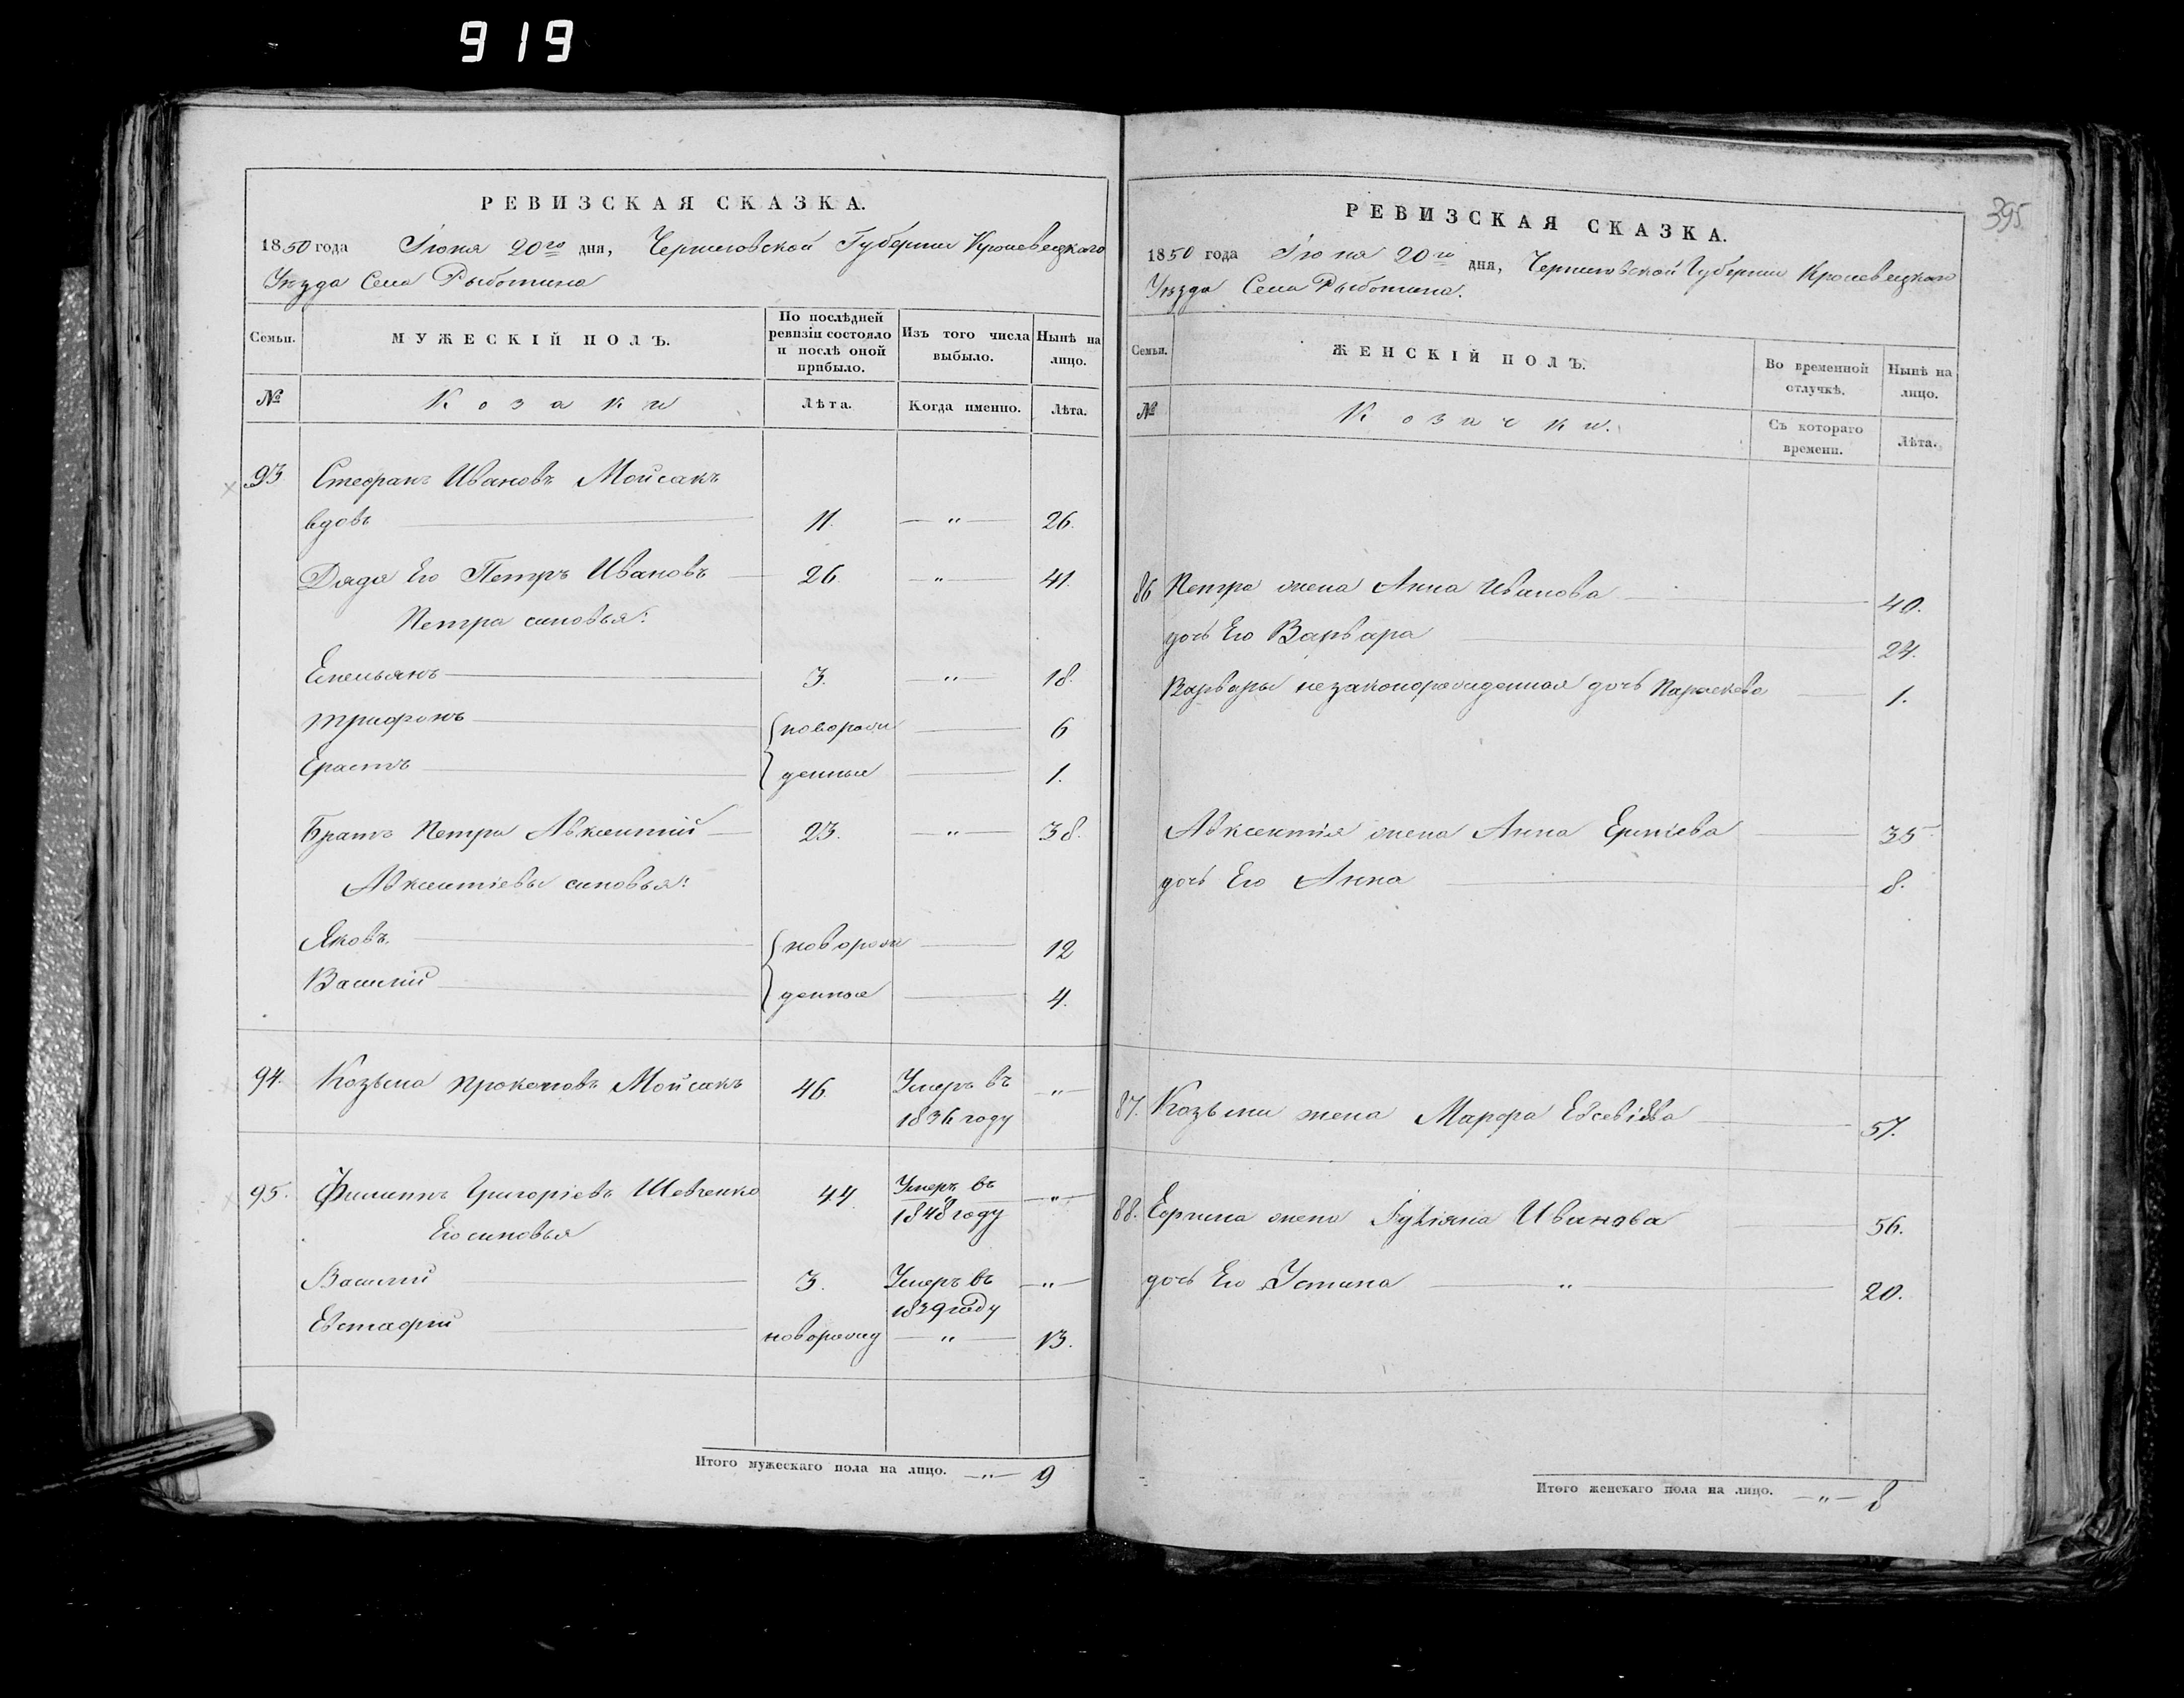 919
РЕВИЗСКАЯ СКАЗКА.
1850 года Іюня 20го дня, Черниговской Губерніи Кролевецкаго
Уѣзда Села Рыботина
Семьи. МУЖЕСКІЙ ПОЛЪ. По послѣдней ревизіи состояло и послѣ оной прибыло. Изъ того числа выбыло. Нынѣ на лицо.
№ Козаки Лѣта. Когда именно. Лѣта.
93 Стефанъ Ивановъ Мойсакъ
вдовъ 11. — " — 26.
Дядя Его Петръ Ивановъ 26. — " — 41.
Петра сыновья:
Емельянъ 3. — " — 18.
Трифонъ новорож 6
Ерастъ денные 1.
Братъ Петра Авксентій 23. — " — 38.
Авксентіевы сыновья:
Яковъ. новорож 12
Василій денные 4.
94. Козьма Прокоповъ Мойсакъ 46. Умеръ въ — " —
1836 году
95. Филиппъ Григоріевъ Шевченко 44 Умеръ въ — " —
1848 году
Его сыновья
Василій 3. Умеръ въ — " —
1839 году
Евстафій новорожд — " — 13.
Итого мужескаго пола на лицо. — " — 9
395
РЕВИЗСКАЯ СКАЗКА.
1850 года Іюня 20го дня, Черниговской Губерніи Кролевецкаго
Уѣзда Села Рыботина.
Семьи. ЖЕНСКІЙ ПОЛЪ. Во временной отлучкѣ. Нынѣ на лицо.
№ Козачки. Съ котораго времени. Лѣта.
86 Петра жена Анна Иванова 40.
дочь Его Варвара 24.
Варвары незаконорожденная дочь Параскева 1.
Авксентія жена Анна 35
дочь Его Анна 8.
87. Козьмы жена Марфа Евсевіева 57.
88. жена Іуліяна Иванова 56.
дочь Его Устина — " — 20.
Итого женскаго пола на лицо. — " — 8